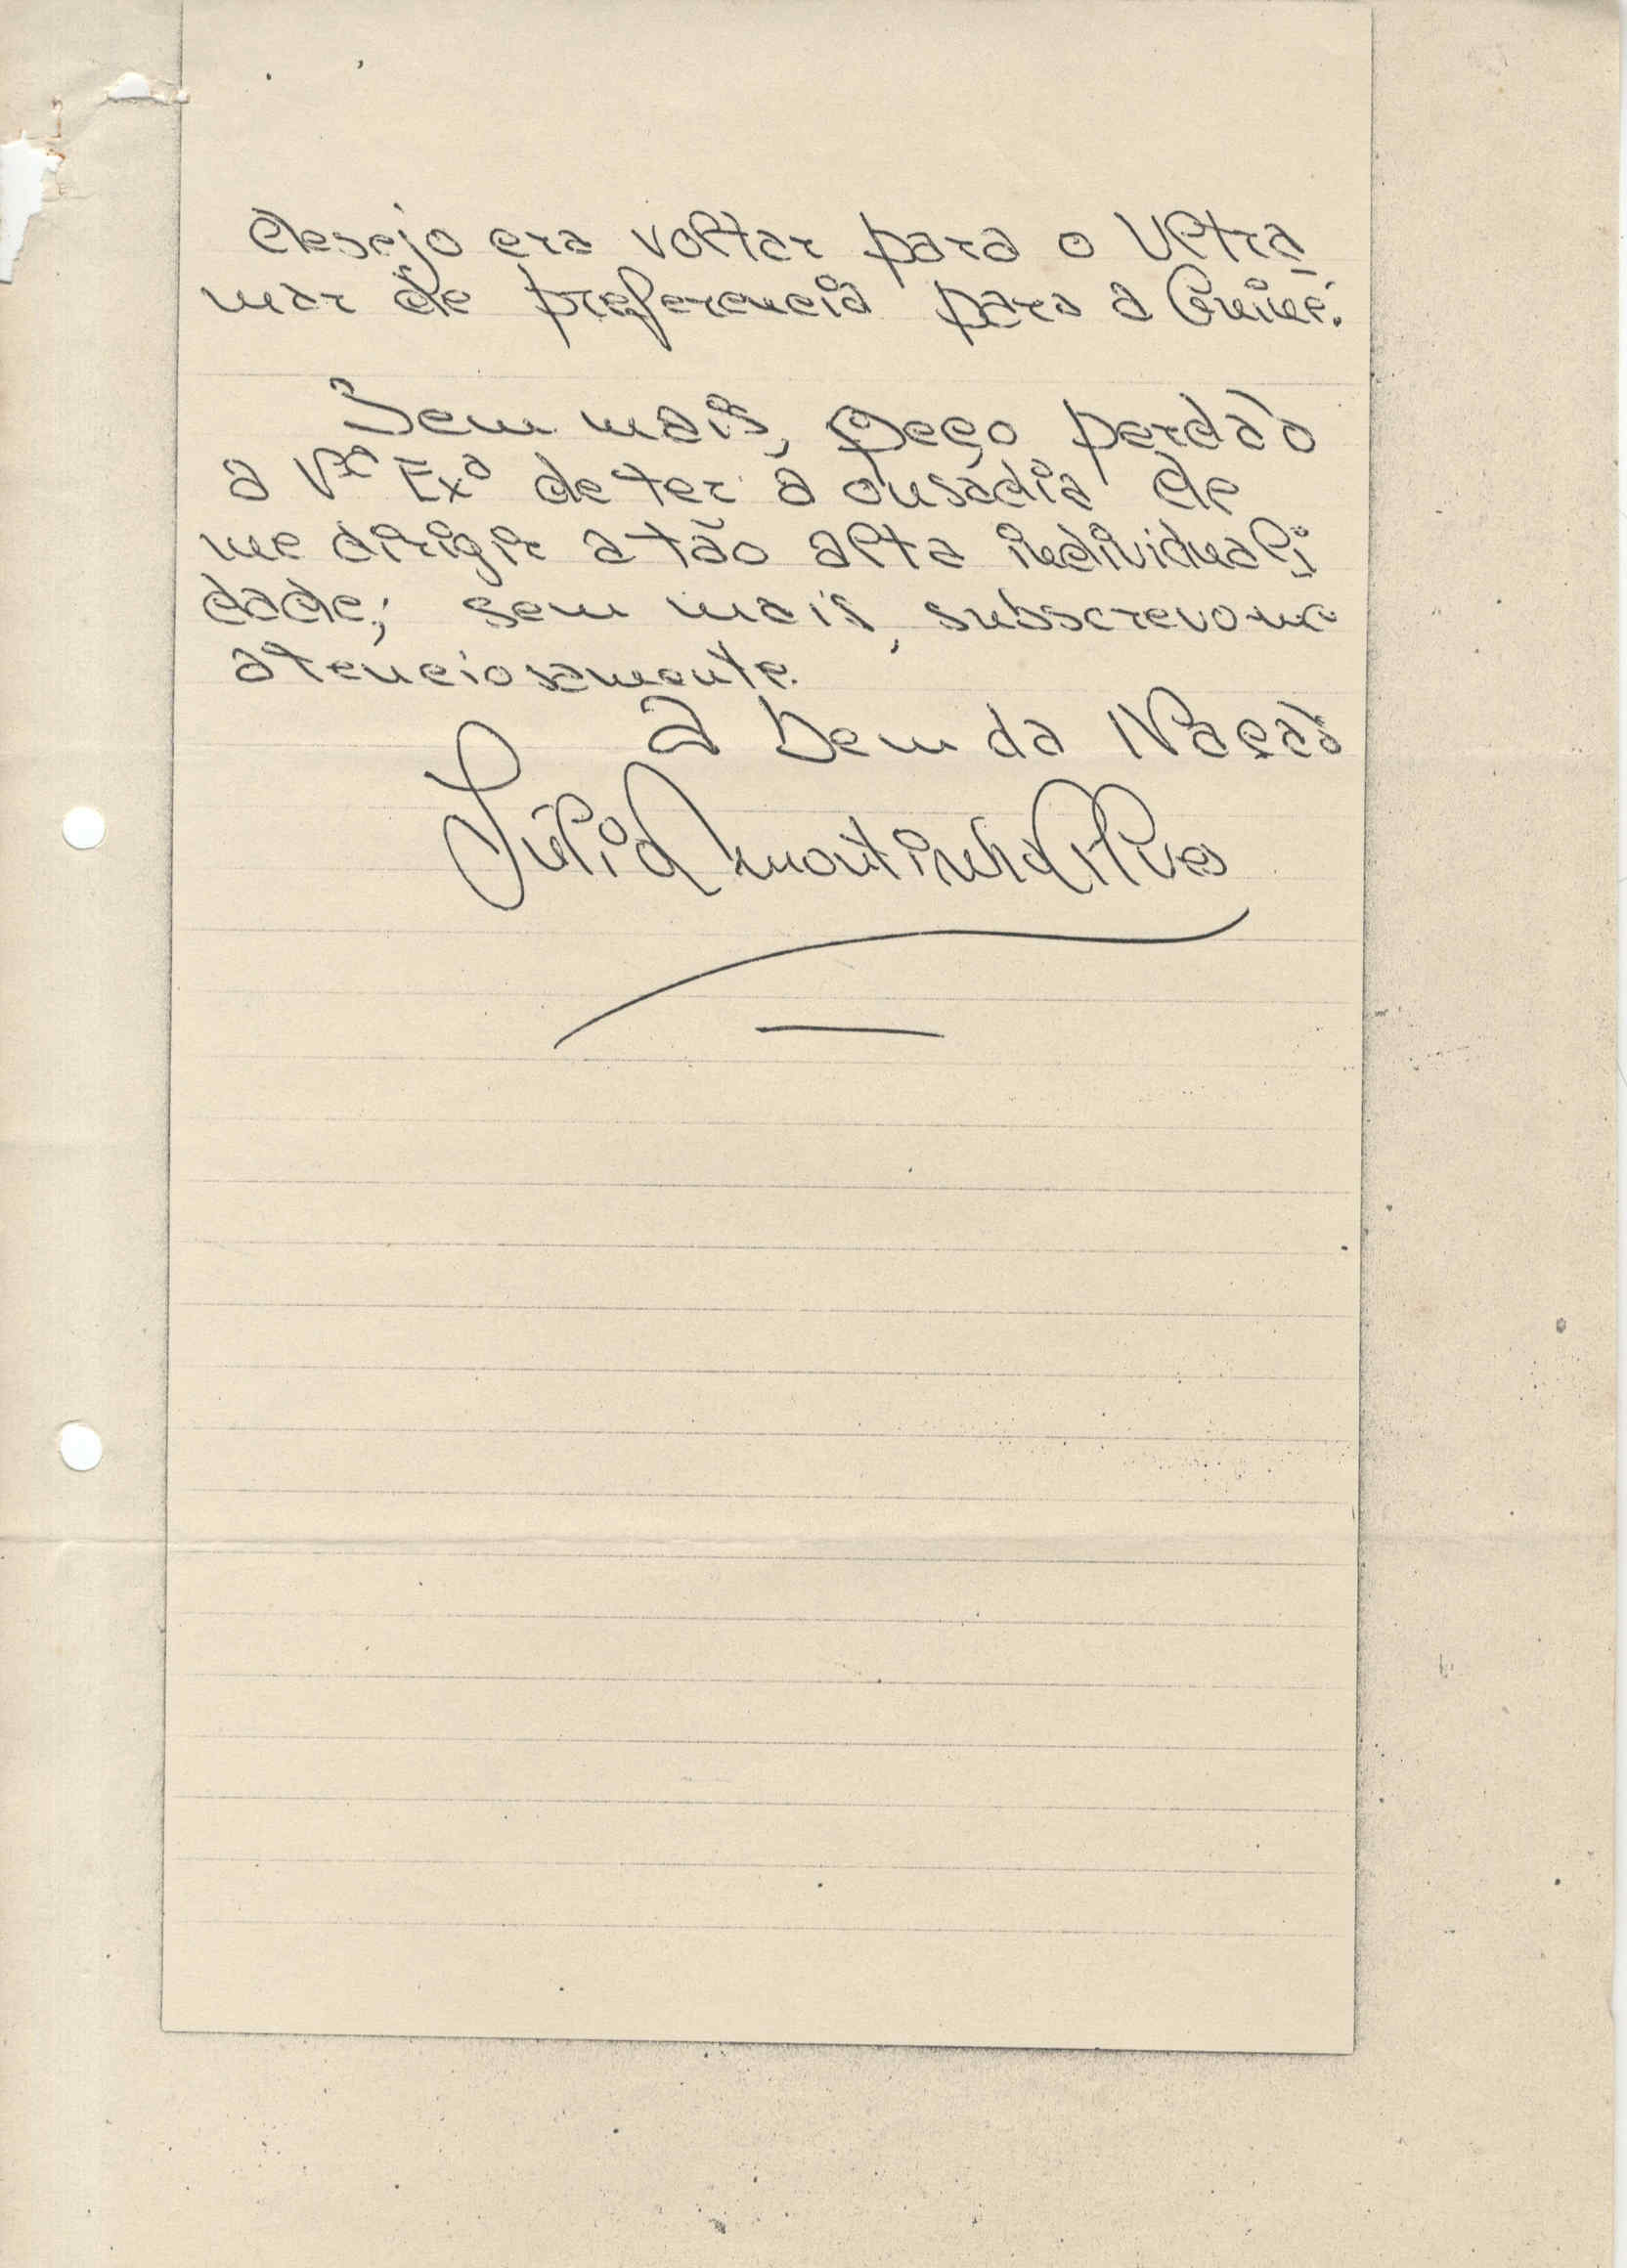 desejo era voltar para o Ultra
mar de preferencia para a Guiné.
Sem mais, peço perdão
a Vª Exª de ter a ousadia de
me dirigir a tão alta individuali
dade; sem mais, subscrevo-me
atenciosamente.
A bem da Nação
Júlio Moutinho Alves